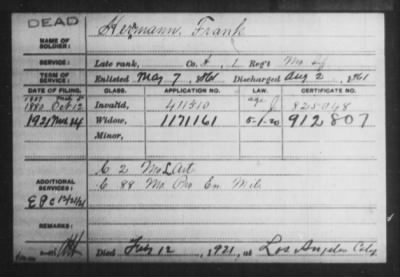 DEAD
NAME OF SOLDIER: Hermann, Frank
SERVICE: Late rank, Co. A, 1 Reg't Mo Inf
TERM OF SERVICE: Enlisted May 7, 1861 Discharged Aug 2, 1861
DATE OF FILING. CLASS. APPLICATION NO. LAW. CERTIFICATE NO.
1880 Oct 12 Invalid, 411510 825048
1921 Mch 14 Widow, 1171161 5-1-20 912807
Minor,
ADDITIONAL SERVICES: C 2 Mo L Art
E 88 Mo Pro En Mil
REMARKS:
Died Feby 12, 1921, at Los Angeles Caly